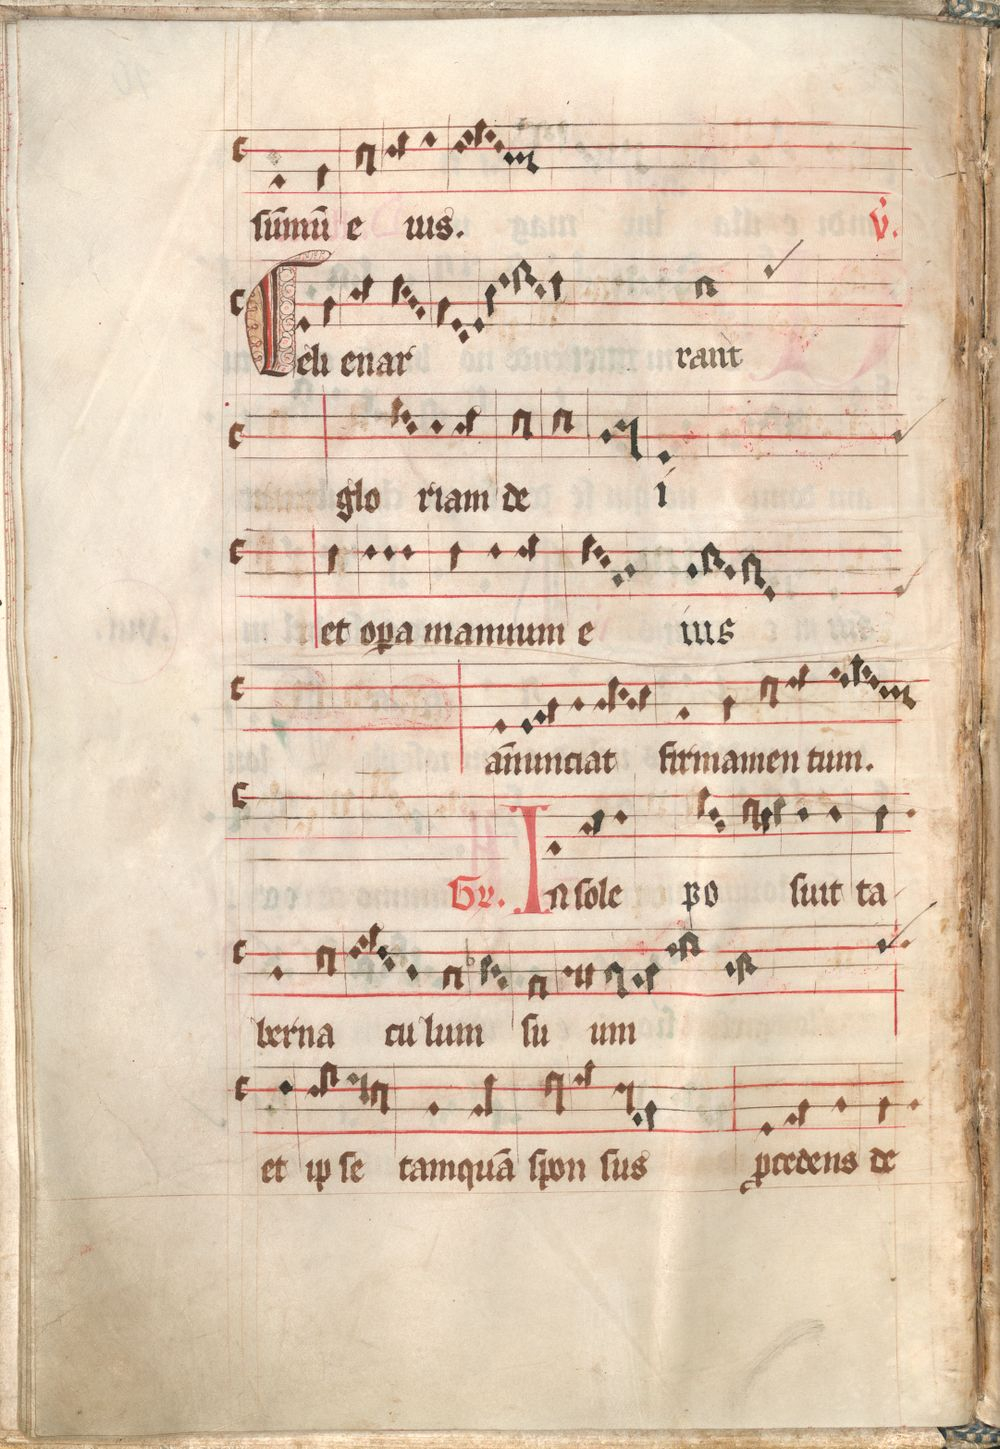 sūmū e ius. V.
Celi enar rant
glo riam de i
et opa manuum e ius
an̄unciat firmamen tum.
Gr. In sole po suit ta
berna cu lum su um
et ip se tamquā spon sus pcedens de